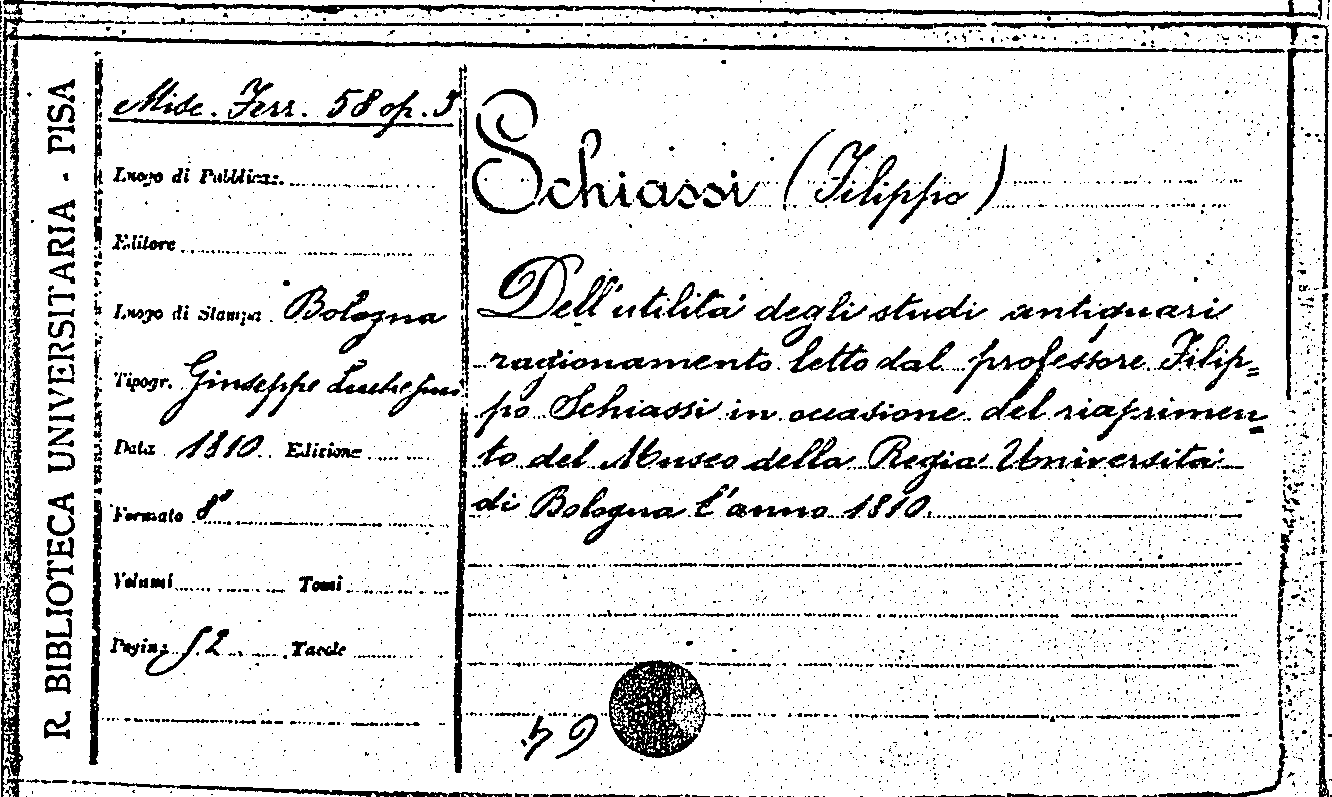 R. BIBLIOTECA UNIVERSITARIA - PISA
Misc. Ferr. 58 op. 5
Luogo di Pubblicaz.
Editore
Luogo di Stampa Bologna
Tipogr. Giuseppe Lucchesini
Data 1810. Edizione
Formato 8°
Volumi Tomi
Pagine 52 Tavole
Schiassi (Filippo)
Dell'utilità degli studi antiquari
ragionamento letto dal professore Filip=
po Schiassi in occasione del riaprimen=
to del Museo della Regia Università
di Bologna l'anno 1810.